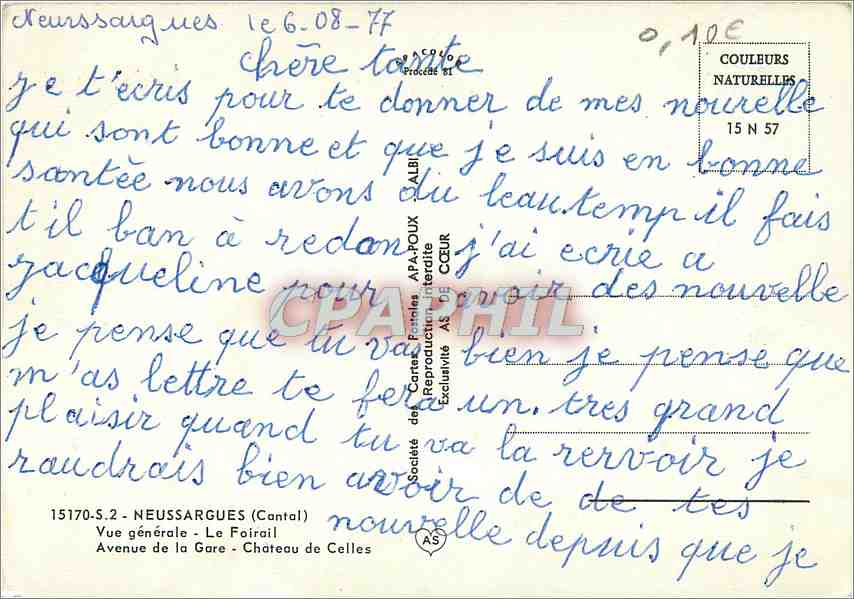 Neussargues le 6-08-77
0,10€
chère tante
APACOLOR
Procédé 81
COULEURS
NATURELLES
15 N 57
je t'ecris pour te donner de mes nouvelle
qui sont bonne et que je suis en bonne
santée nous avons du beau temp il fais
t'il ban à redon j'ai ecrie a
jacqueline pour avoir des nouvelle
je pense que tu vas bien je pense que
m'as lettre te fera un. tres grand
plaisir quand tu va la rervoir je
raudrais bien avoir de de tes
nouvelle depuis que je
Société des Cartes Postales APA-POUX - ALBI
Reproduction interdite
Exclusivité AS DE CŒUR
CPAPHIL
15170-S.2 - NEUSSARGUES (Cantal)
Vue générale - Le Foirail
Avenue de la Gare - Château de Celles
AS